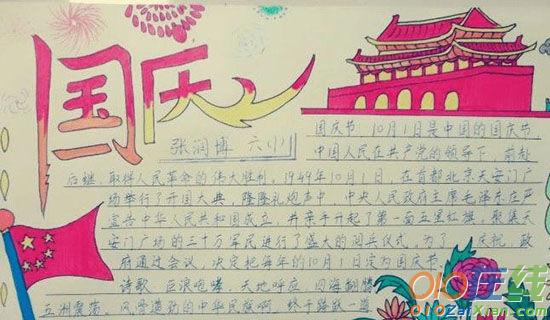 国庆
张润博 六(1)
国庆节 10月1日是中国的国庆节,
中国人民在共产党的领导下,前赴
后继,取得人民革命的伟大胜利,1949年10月1日,在首都北京天安门广
场举行了开国大典,隆隆礼炮声中,中央人民政府主席毛泽东庄严
宣告中华人民共和国成立,并亲手升起了第一面五星红旗,聚集天
安门广场的三十万军民进行了盛大的阅兵仪式,为了 庆祝,政
府通过会议,决定把每年的10月1日定为国庆节。
诗歌 巨浪咆哮,天地呼应 四海翻腾
五洲震荡,风雷激动的中华民族啊 终于踏
在线
ZaiXian.com